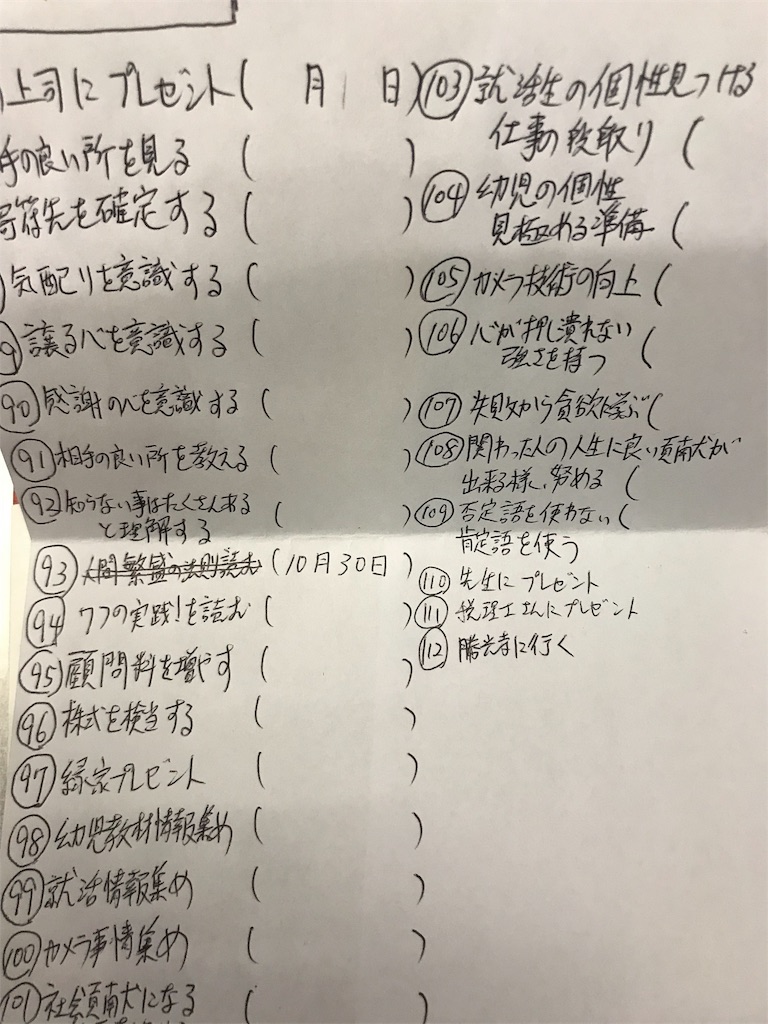 上司にプレゼント( 月 日)
手の良い所を見る ( )
寄符先を確定する ( )
気配りを意識する ( )
譲る心を意識する ( )
90 感謝の心を意識する ( )
91 相手の良い所を教える ( )
92 知らない事はたくさんある
と理解する ( )
93 人間繁盛の法則読む (10月30日)
94 7つの実践!を読む ( )
95 顧問料を増やす ( )
96 株式を検当する ( )
97 縁家プレゼント ( )
98 幼児教材情報集め ( )
99 就活情報集め ( )
100 カメラ事情集め ( )
101 社会貢献になる (
103 就活生の個性見つける
仕事の段取り (
104 幼児の個性
見極める準備 (
105 カメラ技術の向上 (
106 心が押し潰れない
強さを持つ (
107 失敗から貪欲に学ぶ (
108 関わった人の人生に良い貢献が
出来る様に努める (
109 否定語を使わない (
肯定語を使う
110 先生にプレゼント
111 税理士さんにプレゼント
112 勝光寺に行く